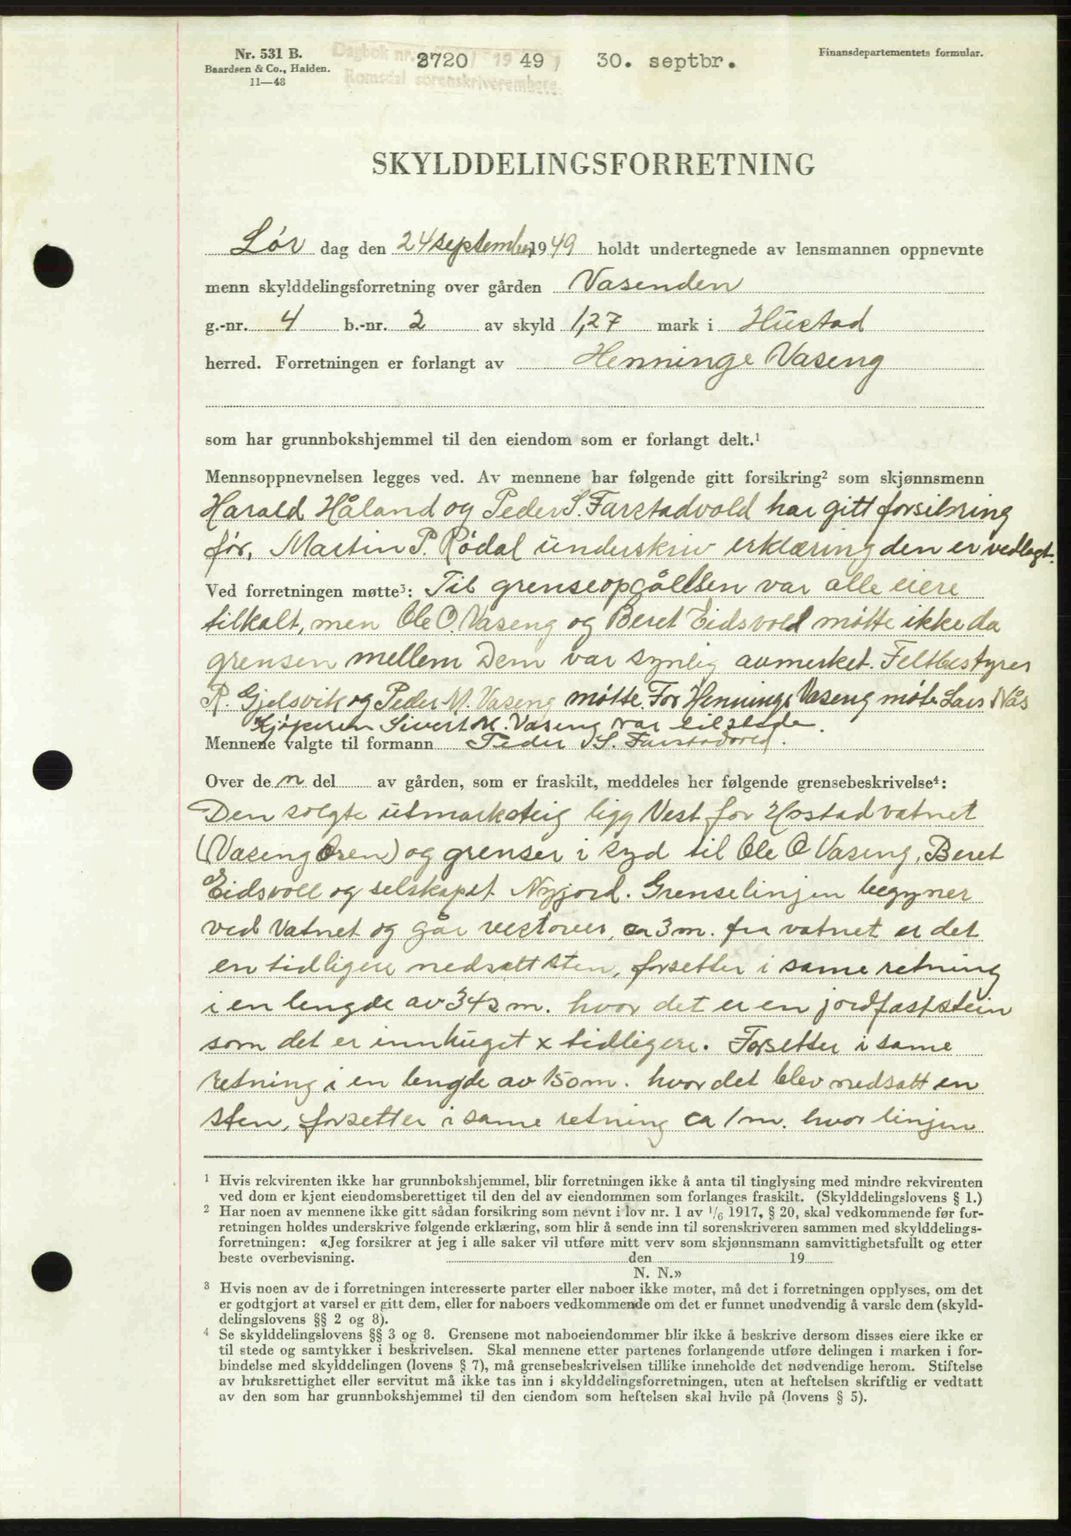 Nr. 531 B.
Baardsen & Co., Halden.
11—48
Dagbok nr. 3720 / 1949, 30. septbr.
Romsdal sorenskriverembete.
Finansdepartementets formular.
SKYLDDELINGSFORRETNING
Lør dag den 24 september 1949 holdt undertegnede av lensmannen oppnevnte
menn skylddelingsforretning over gården Vasenden
g.-nr. 4 b.-nr. 2 av skyld 1,27 mark i Hustad
herred. Forretningen er forlangt av Henninge Vaseng
som har grunnbokshjemmel til den eiendom som er forlangt delt.¹
Mennsoppnevnelsen legges ved. Av mennene har følgende gitt forsikring² som skjønnsmenn
Harald Håland og Peder S. Farstadvold har gitt forsikring
før, Martin P. Rødal underskriv erklæring den er vedlagt.
Ved forretningen møtte³: Til grenseopgåelsen var alle eiere
tilkalt, men Ole O. Vaseng og Beret Eidsvold møtte ikke da
grensen mellem Dem var synlig avmerket. Feltbestyrer
R. Gjelsvik og Peder M. Vaseng møtte. For Henninge Vaseng møte Lars Nås
Kjøperen Sivert M. Vaseng var tilstede.
Mennene valgte til formann Peder S. Farstadvold.
Over de n del av gården, som er fraskilt, meddeles her følgende grensebeskrivelse⁴:
Den solgte utmarksteig ligg Vest for Hostadvatnet
(Vaseng Osen) og grenser i syd til Ole O Vaseng, Beret
Eidsvoll og selskapet Nyjord. Grenselinjen begyner
ved Vatnet og går vestover, ca 3 m. fra vatnet er det
en tidligere nedsatt sten, forsetter i same retning
i en lengde av 342 m. hvor det er en jordfast stein
som det er innhuget x tidligere. Forsetter i same
retning i en lengde av 150 m. hvor det blev nedsatt en
sten, forsetter i same retning ca 1 m. hvor linjen
¹ Hvis rekvirenten ikke har grunnbokshjemmel, blir forretningen ikke å anta til tinglysing med mindre rekvirenten
ved dom er kjent eiendomsberettiget til den del av eiendommen som forlanges fraskilt. (Skylddelingslovens § 1.)
² Har noen av mennene ikke gitt sådan forsikring som nevnt i lov nr. 1 av 1/6 1917, § 20, skal vedkommende før for-
retningen holdes underskrive følgende erklæring, som blir å sende inn til sorenskriveren sammen med skylddelings-
forretningen: «Jeg forsikrer at jeg i alle saker vil utføre mitt verv som skjønnsmann samvittighetsfullt og etter
beste overbevisning. den 19
N. N.»
³ Hvis noen av de i forretningen interesserte parter eller naboer ikke møter, må det i forretningen opplyses, om det
er godtgjort at varsel er gitt dem, eller for naboers vedkommende om det er funnet unødvendig å varsle dem (skyld-
delingslovens §§ 2 og 8).
⁴ Se skylddelingslovens §§ 3 og 8. Grensene mot naboeiendommer blir ikke å beskrive dersom disses eiere ikke er
til stede og samtykker i beskrivelsen. Skal mennene etter partenes forlangende utføre delingen i marken i for-
bindelse med skylddelingen (lovens § 7), må grensebeskrivelsen tillike inneholde det nødvendige herom. Stiftelse
av bruksrettighet eller servitut må ikke tas inn i skylddelingsforretningen, uten at heftelsen skriftlig er vedtatt
av den som har grunnbokshjemmel til den eiendom som heftelsen skal hvile på (lovens § 5).